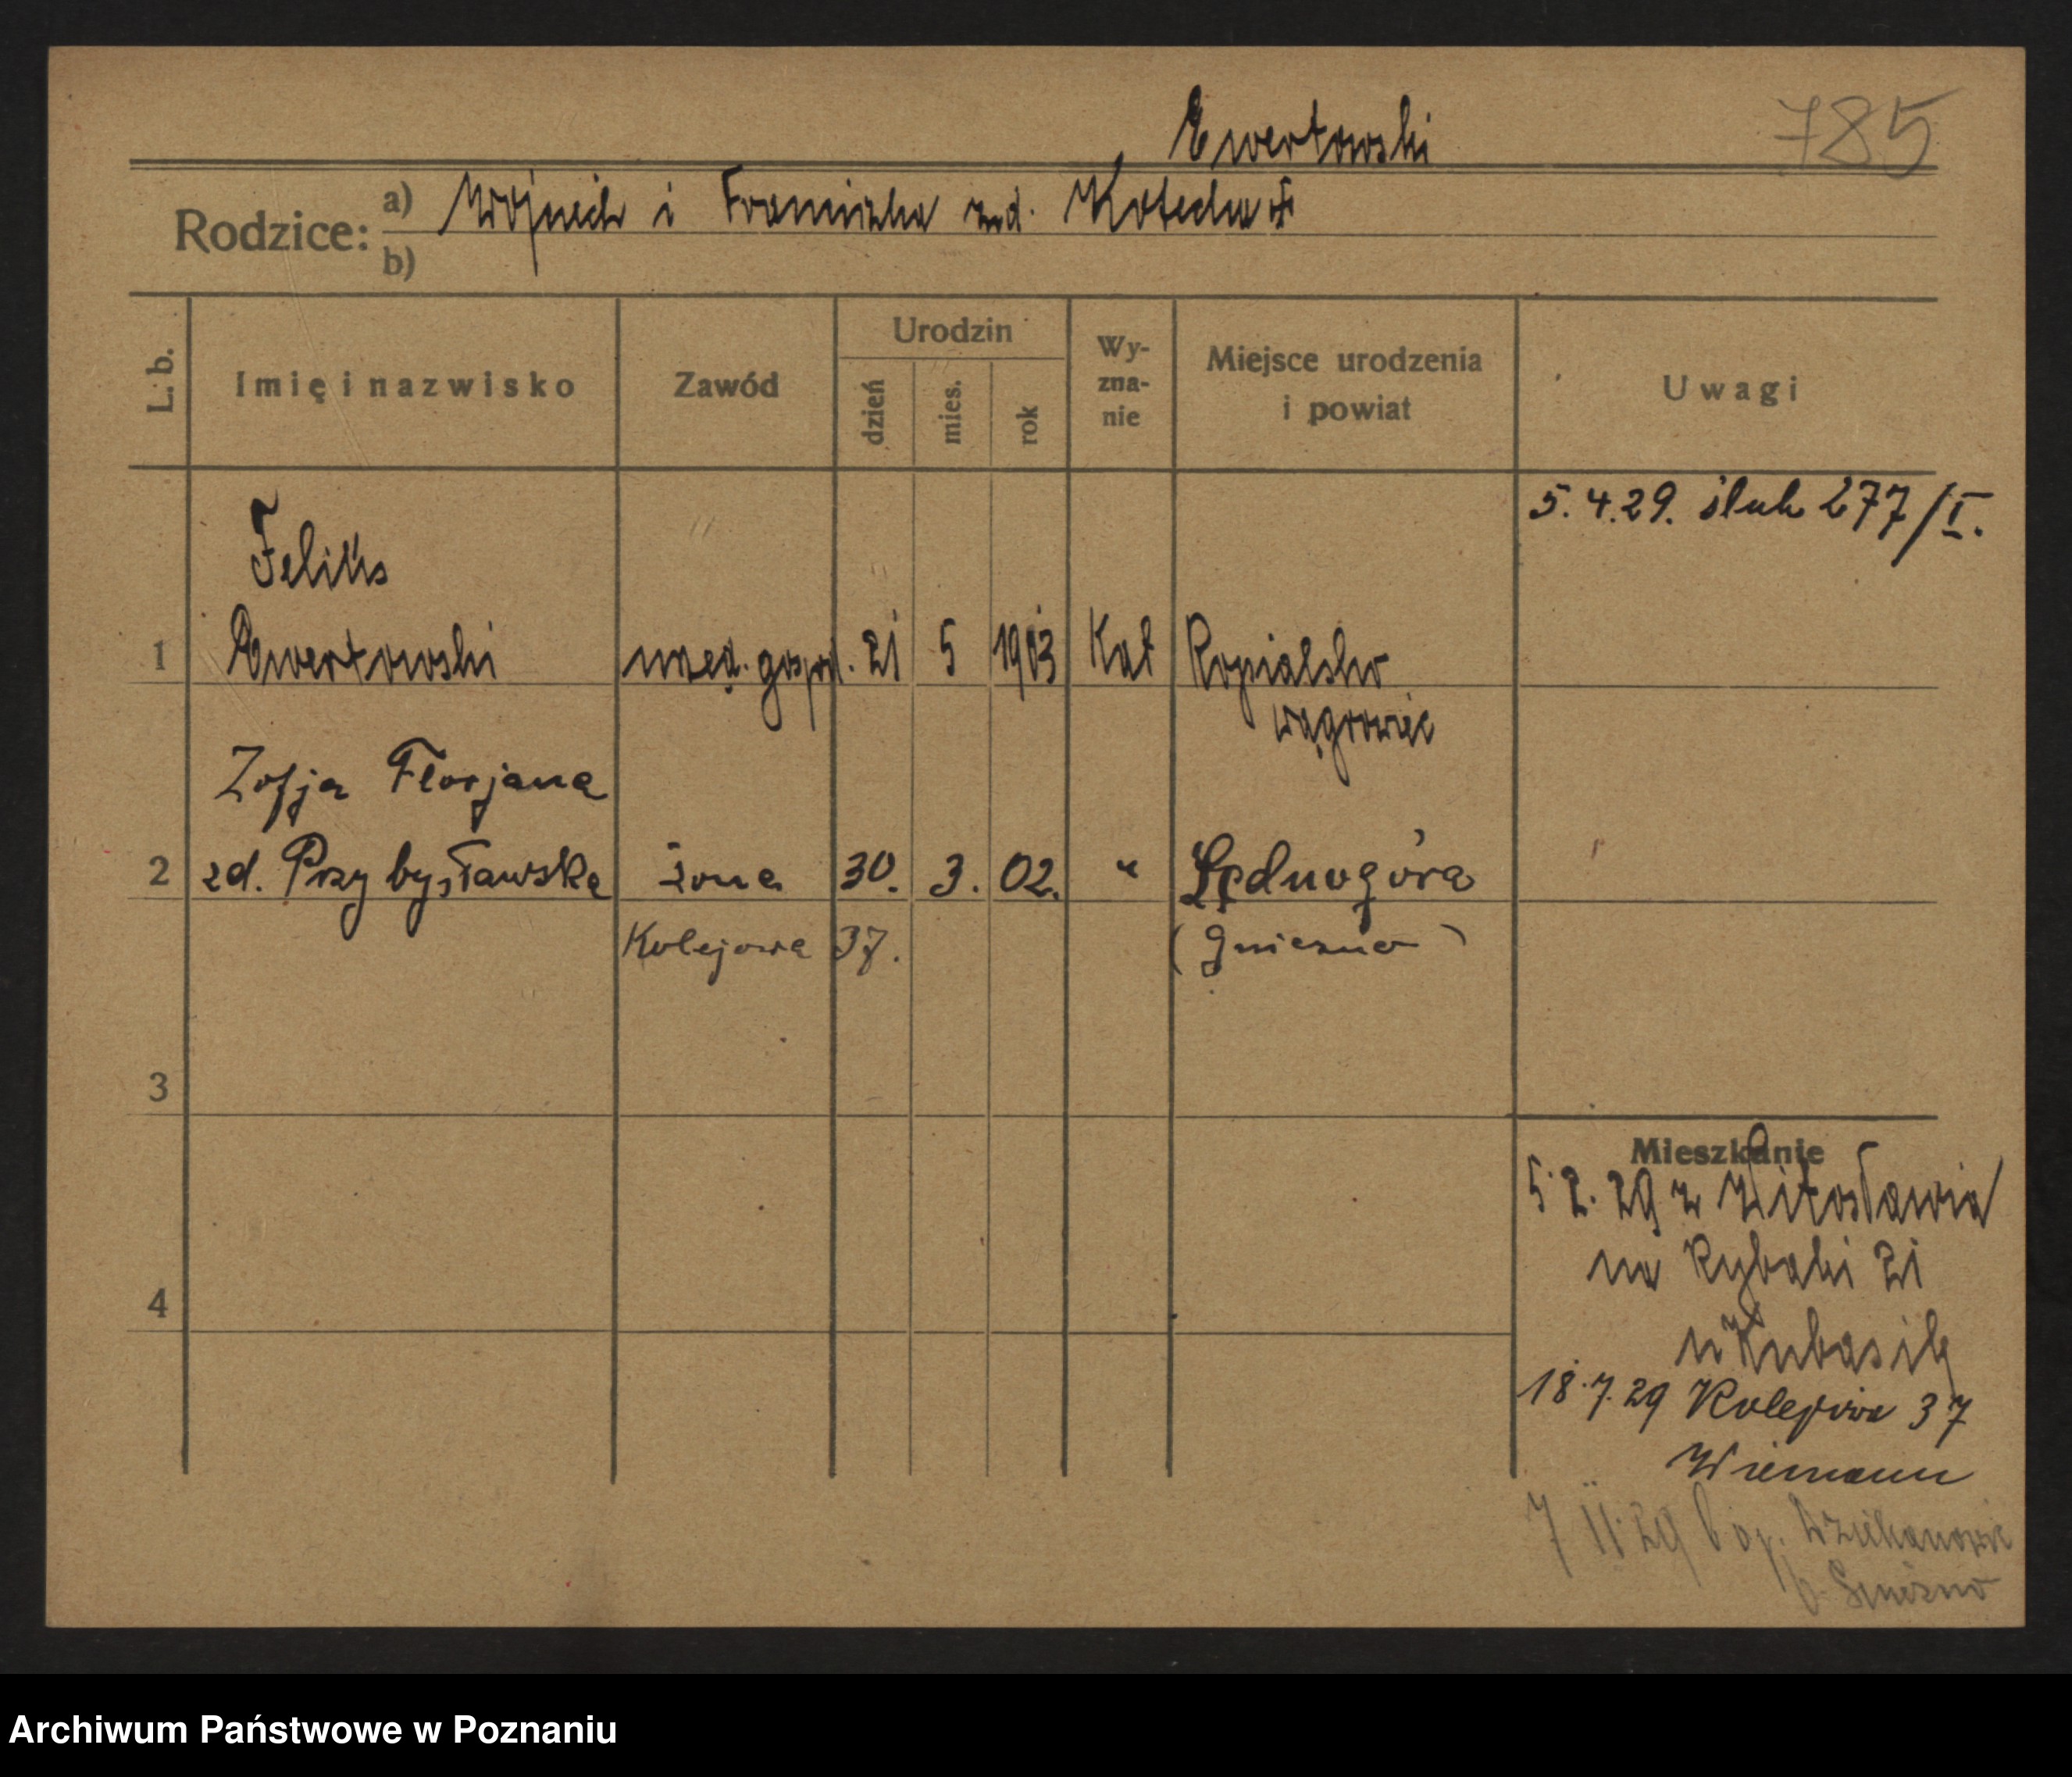 785
Ewertowski
Rodzice:
a) Wojciech i Franciszka zd.
b)
L. b.
Imię i nazwisko
Zawód
Urodzin
dzień
mies.
rok
Wy-
zna-
nie
Miejsce urodzenia
i powiat
Uwagi
5.4.29. ślub 277/I.
Feliks
1 Ewertowski urzęd. gospod. 21 5 1903 Kat
wągrowiec
Zofja Florjana
2 zd. Przybysławska żona 30. 3. 02. " Lednogóra
Kolejowa 37. (Gniezno)
3
Mieszkanie
5.2.29 z Witosławia
na Rybaki 21
4
u Kubasik
18.7.29 Kolejowa 37
Wiemann
7 11.29
Gniezno
Archiwum Państwowe w Poznaniu